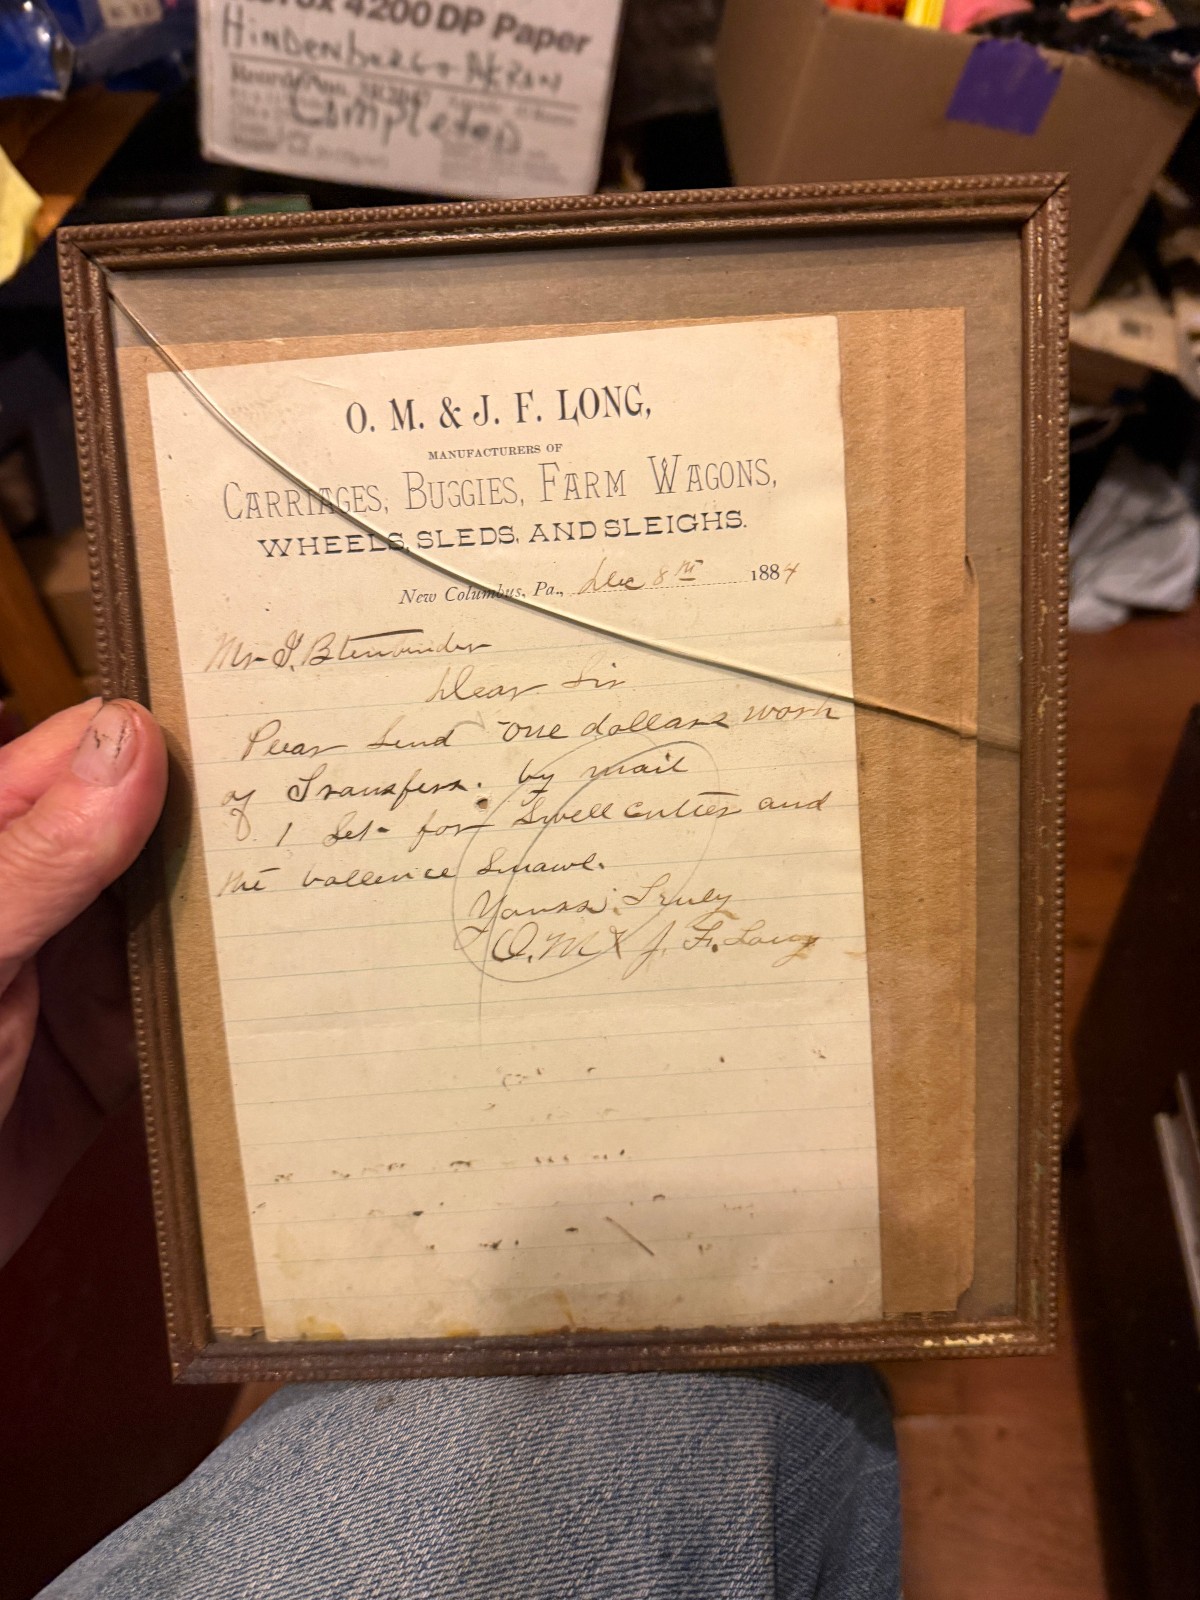 4200 DP Paper
Hindenburg + Akron
Completed
O. M. & J. F. LONG,
MANUFACTURERS OF
CARRIAGES, BUGGIES, FARM WAGONS,
WHEELS, SLEDS, AND SLEIGHS.
New Columbus, Pa., Dec 8th 1884
Mr I. Btenbender
Dear Sir
Pleas Send one dollars worth
of Transfers. by mail
1 Set for Swell cutter and
the ballence Smawl.
Yourss Truly
O. M & J. F. Long